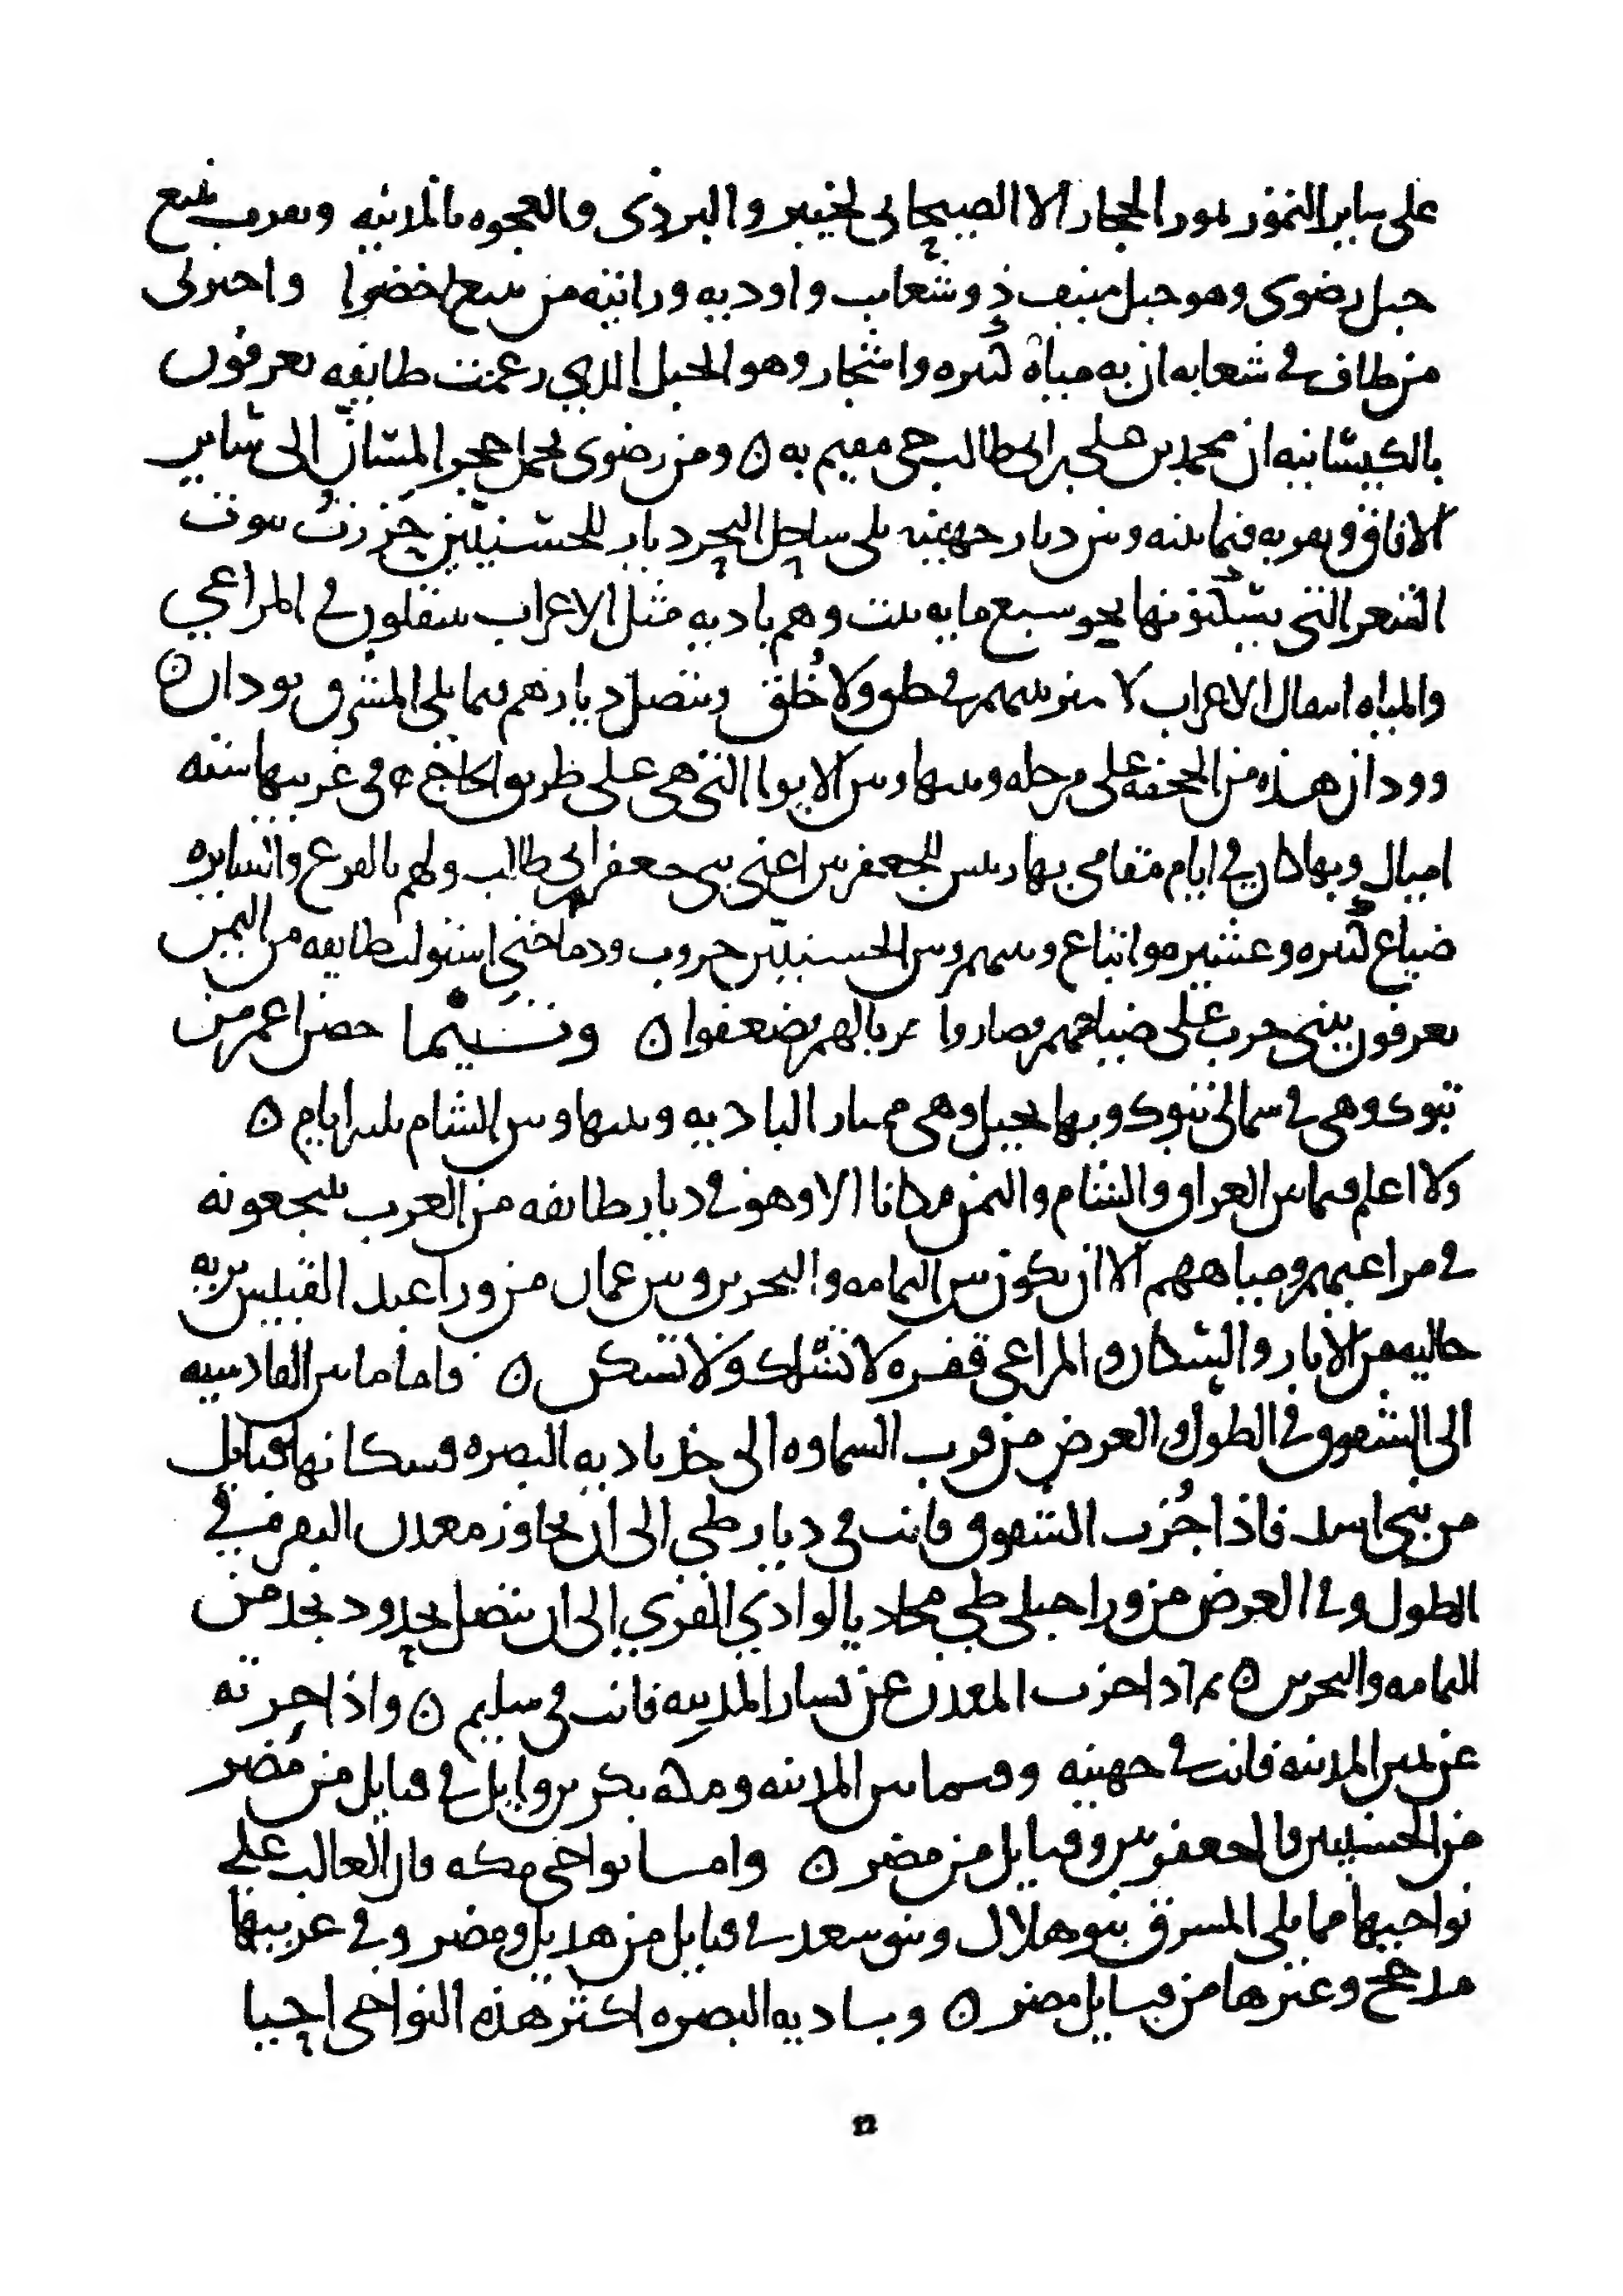 على ساير التمور تمور الحجاز الا الصيحاني لخيبر والبردي والعجوه بالمدينه وبقرب ينبع
جبل رضوى وهو جبل منيف ذو شعاب واوديه ورايته من ينبع اخضرا واخبرني
من طاف في شعابه ان به مياه كثيره واشجار وهو الجبل الذي زعمت طايفه تعرفون
بالكيسانيه ان محمد بن علي بن ابي طالب حي مقيم به ه ومن رضوى يحمل حجر المسان الى ساير
الافاق وبقربه فيما بينه وبين ديار جهينه يلي ساحل البحر ديار للحسنيين حزرت بيوت
الشعر التي يسكنونها نحو سبع مايه بيت وهم باديه مثل الاعراب ينتقلون في المراعي
والمياه انتقال الاعراب لا تميز بينهم في خلق ولا خلق وتتصل ديارهم مما يلي المشرق بودان ه
وودان هذه من الجحفه على مرحله وبينها وبين الابوا التي هي على طريق الحاج في غربيها سته
اميال وبها كان في ايام مقامي بها رييس للجعفريين اعني بني جعفر ابي طالب ولهم بالفرع والسايره
ضياع كثيره وعشيره واتباع وبينهم وبين الحسنيين حروب ودما حتى استولت طايفه من اليمن
يعرفون ببني حرب على ضياعهم فصاروا حربا لهم فضعفوا ه وتيما حصن اعمر من
تبوك وهي في شمالي تبوك وبها نخيل وهي ممتار الباديه وبينها وبين الشام ثلثه ايام ه
ولا اعلم فيما بين العراق والشام واليمن مكانا الا وهو في ديار طايفه من العرب ينتجعونه
في مراعيهم ومياههم الا ان يكون بين اليمامه والبحرين وبين عمان من ورا عبد القيس بريه
خاليه من الابار والسكان والمراعي قفره لا تسلك ولا تسكن ه فاما ما بين القادسيه
الى الشقوق في الطول والعرض من قرب السماوه الى حد باديه البصره فسكانها قبايل
من بني اسد فاذا جزت الشقوق فانت في ديار طي الى ان تجاوز معدن النقره في
الطول وفي العرض من ورا جبلي طي محاذيا لوادي القرى الى ان تتصل بحدود نجد من
اليمامه والبحرين ه ثم اذا جزت المعدن عن يسار المدينه فانت في سليم ه واذا جزته
عن يمين المدينه فانت في جهينه وفيما بين المدينه ومكه بكر بن وايل في قبايل من مضر
من الحسنيين والجعفريين وقبايل من مضر ه واما نواحي مكه فان الغالب على
نواحيها مما يلي المشرق بنو هلال وبنو سعد في قبايل من هذيل ومضر وفي غربيها
مدحج وغيرها من قبايل مضر ه وبباديه البصره اكثر هذه النواحي احيا
٢٢